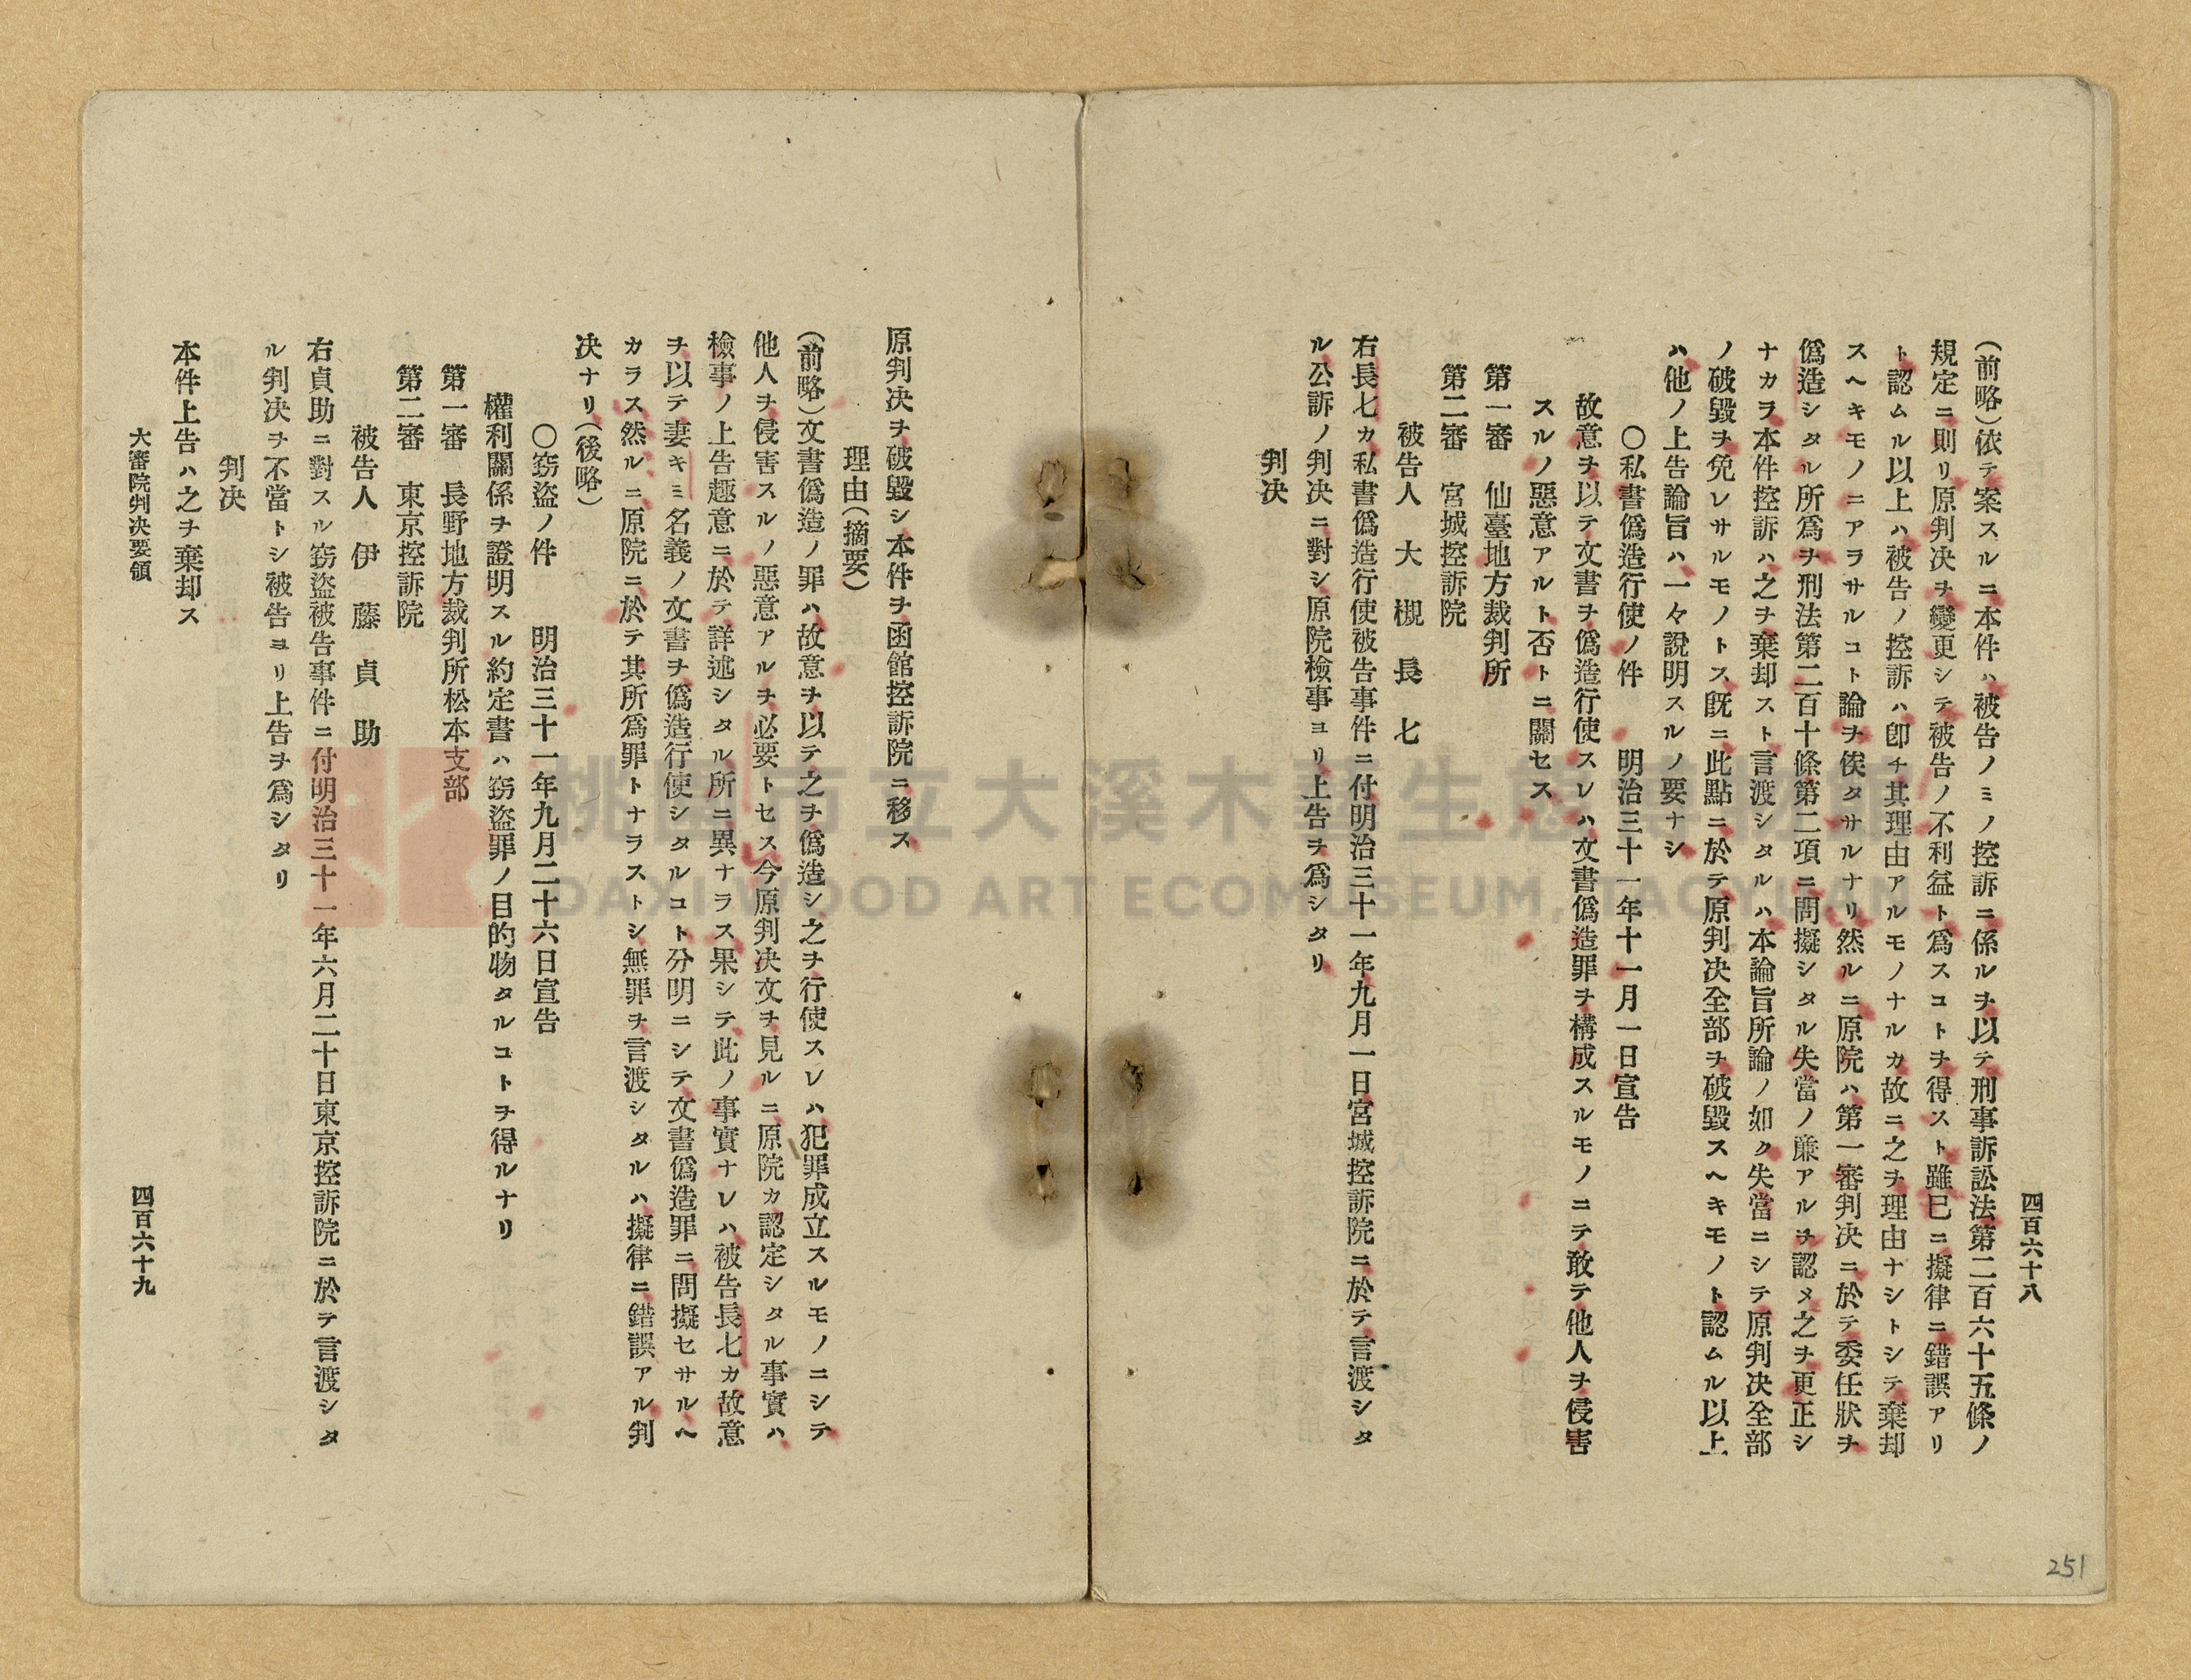 四百六十八
(前略)依テ案スルニ本件ハ被告ノミノ控訴ニ係ルヲ以テ刑事訴訟法第二百六十五條ノ
規定ニ則リ原判决ヲ變更シテ被告ノ不利益ト爲スコトヲ得スト雖巳ニ擬律ニ錯誤アリ
ト認ムル以上ハ被告ノ控訴ハ卽チ其理由アルモノナルカ故ニ之ヲ理由ナシトシテ棄却
スヘキモノニアラサルコト論ヲ俟タサルナリ然ルニ原院ハ第一審判决ニ於テ委任狀ヲ
僞造シタル所爲ヲ刑法第二百十條第二項ニ問擬シタル失當ノ廉アルヲ認メ之ヲ更正シ
ナカラ本件控訴ハ之ヲ棄却スト言渡シタルハ本論旨所論ノ如ク失當ニシテ原判决全部
ノ破毀ヲ免レサルモノトス既ニ此點ニ於テ原判决全部ヲ破毀スヘキモノト認ムル以上
ハ他ノ上告論旨ハ一々說明スルノ要ナシ
〇私書僞造行使ノ件 明治三十一年十一月一日宣告
故意ヲ以テ文書ヲ僞造行使スレハ文書僞造罪ヲ構成スルモノニテ敢テ他人ヲ侵害
スルノ惡意アルト否トニ關セス
第一審 仙臺地方裁判所
第二審 宮城控訴院
被告人 大槻長七
右長七カ私書僞造行使被告事件ニ付明治三十一年九月一日宮城控訴院ニ於テ言渡シタ
ル公訴ノ判决ニ對シ原院檢事ヨリ上告ヲ爲シタリ
判决
原判决ヲ破毀シ本件ヲ函館控訴院ニ移ス
理由(摘要)
(前略)文書僞造ノ罪ハ故意ヲ以テ之ヲ僞造シ之ヲ行使スレハ犯罪成立スルモノニシテ
他人ヲ侵害スルノ惡意アルヲ必要トセス今原判决文ヲ見ルニ原院カ認定シタル事實ハ
檢事ノ上告趣意ニ於テ詳述シタル所ニ異ナラス果シテ此ノ事實ナレハ被告長七カ故意
ヲ以テ妻キミ名義ノ文書ヲ僞造行使シタルコト分明ニシテ文書僞造罪ニ問擬セサルヘ
カラス然ルニ原院ニ於テ其所爲罪トナラストシ無罪ヲ言渡シタルハ擬律ニ錯誤アル判
决ナリ(後略)
〇竊盜ノ件 明治三十一年九月二十六日宣告
權利關係ヲ證明スル約定書ハ竊盜罪ノ目的物タルコトヲ得ルナリ
第一審 長野地方裁判所松本支部
第二審 東京控訴院
被告人 伊藤貞助
右貞助ニ對スル竊盜被告事件ニ付明治三十一年六月二十日東京控訴院ニ於テ言渡シタ
ル判决ヲ不當トシ被告ヨリ上告ヲ爲シタリ
判决
本件上告ハ之ヲ棄却ス
大審院判决要領
四百六十九
251
桃園市立大溪木藝生態博物館
DAXI WOOD ART ECOMUSEUM, TAOYUAN